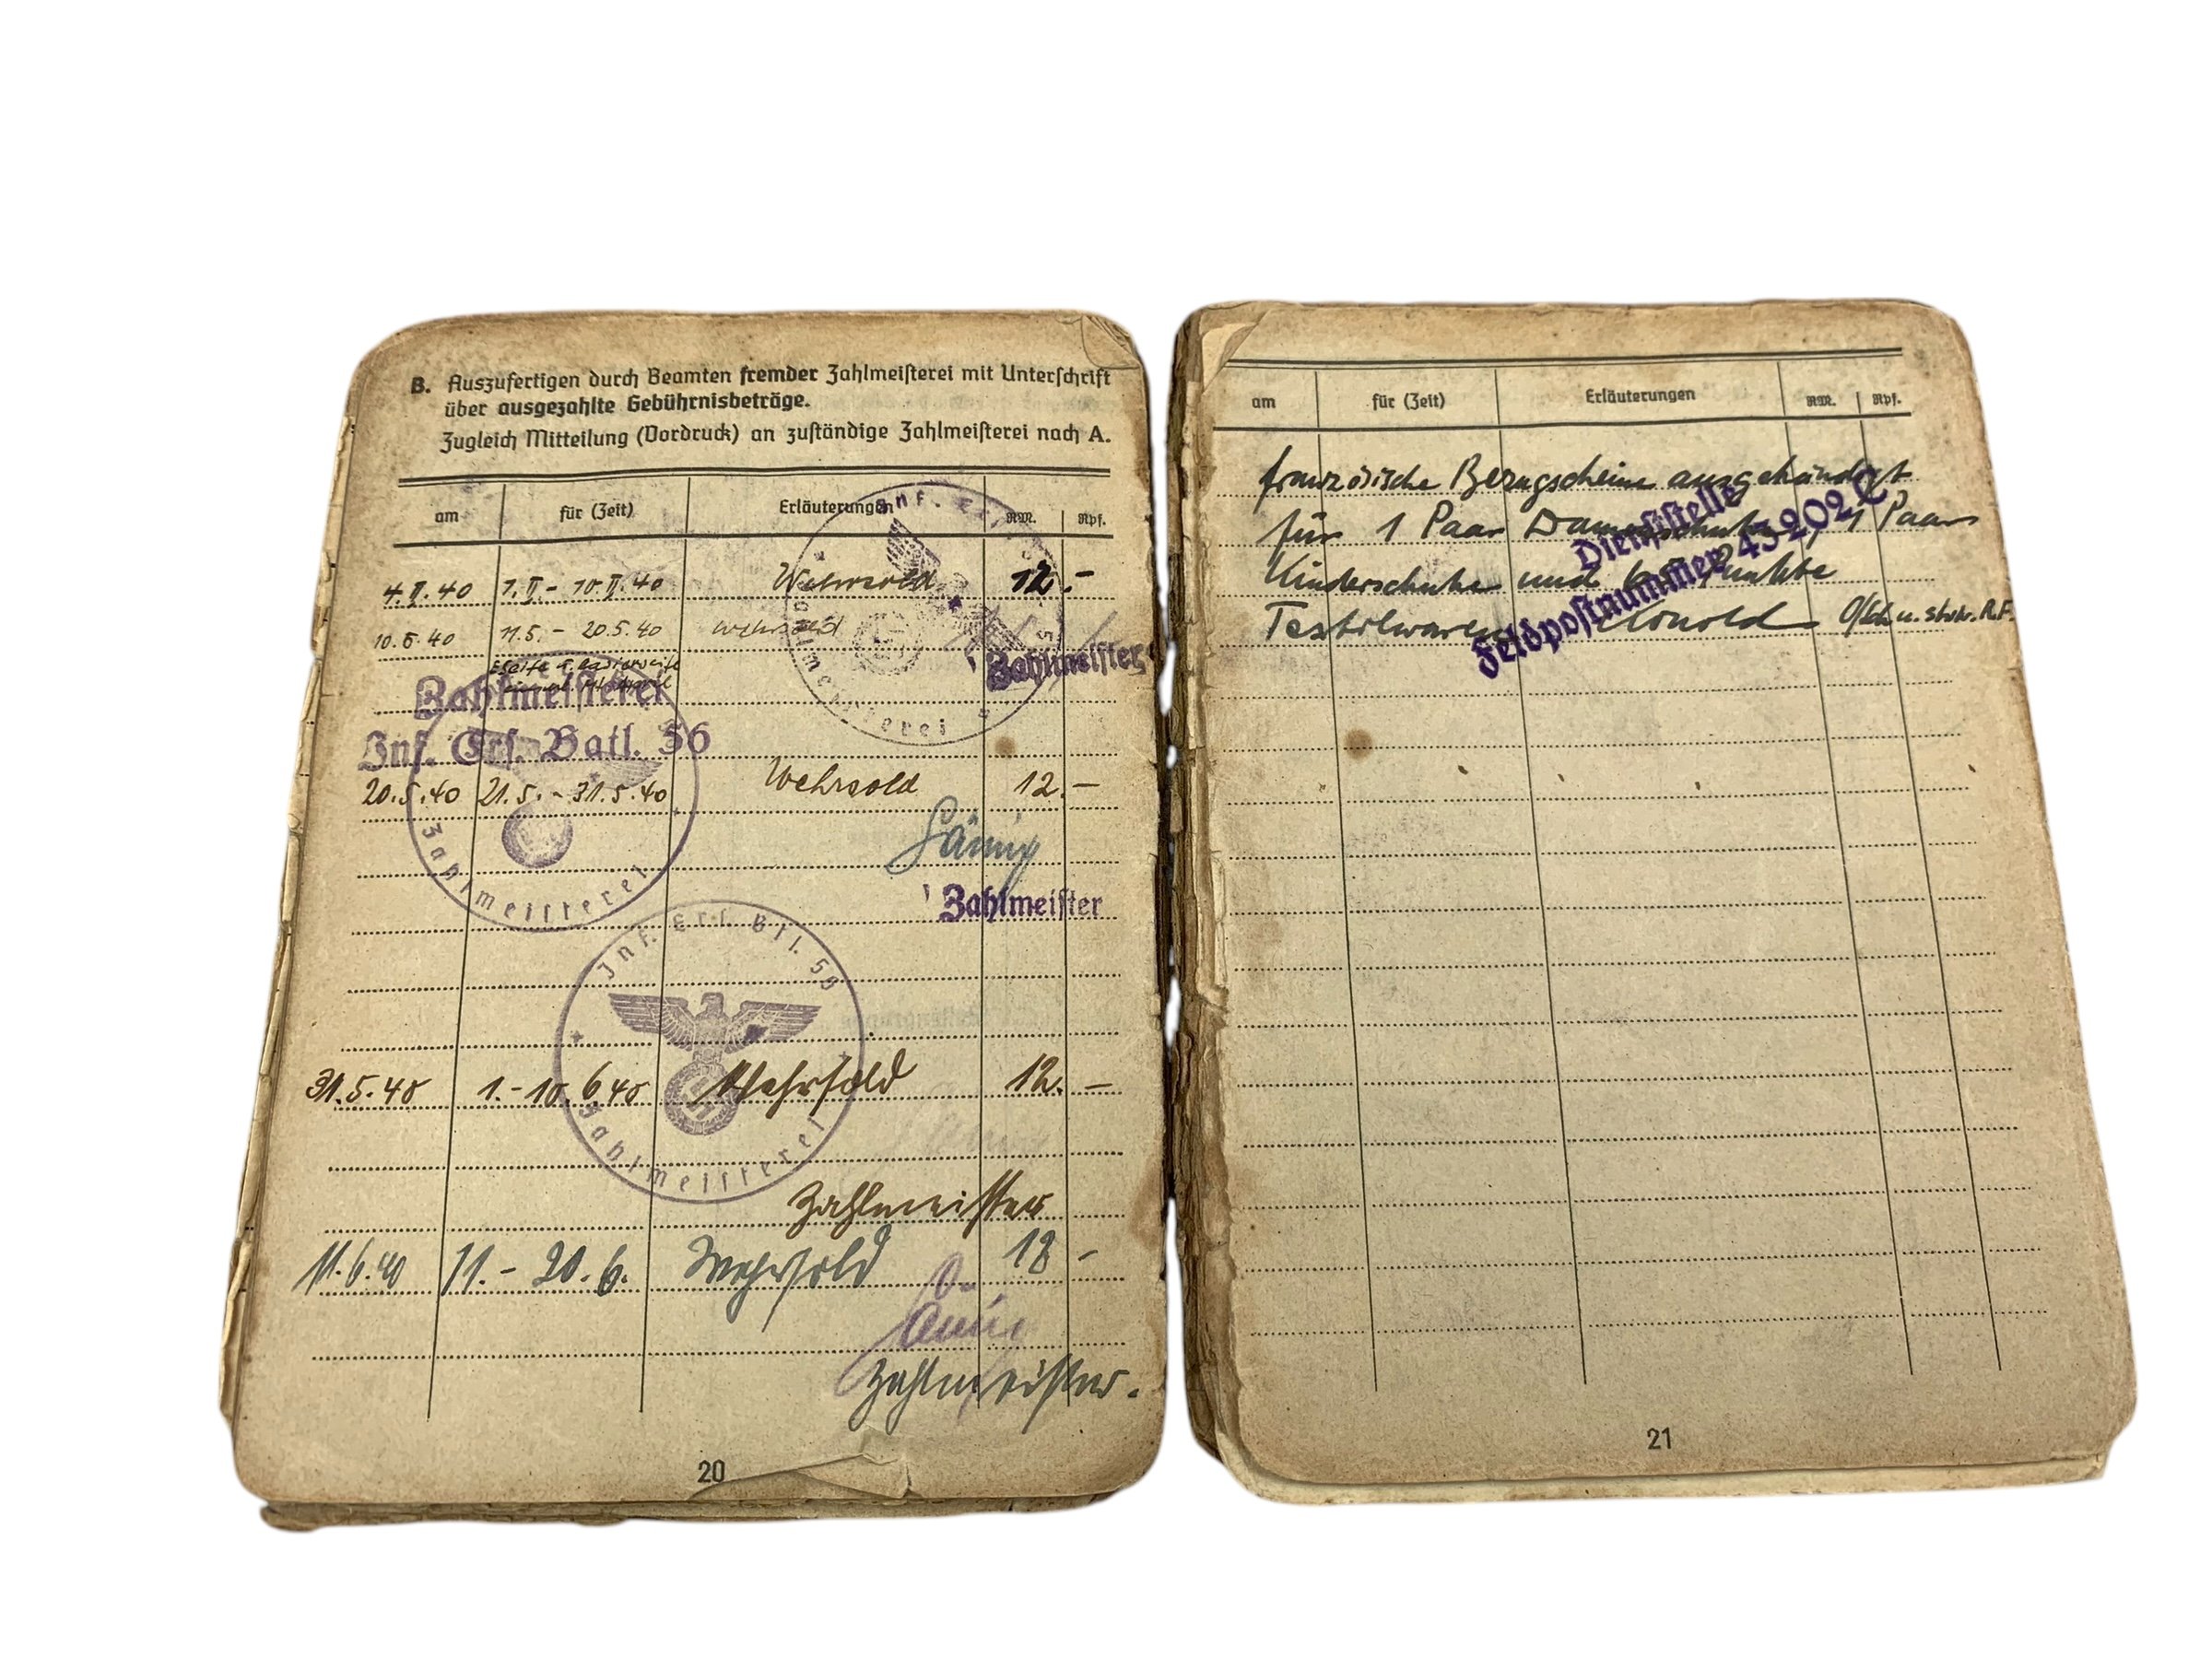 B. Auszufertigen durch Beamten fremder Zahlmeisterei mit Unterschrift
über ausgezahlte Gebührnisbeträge.
Zugleich Mitteilung (Vordruck) an zuständige Zahlmeisterei nach A.
am für (Zeit) Erläuterungen RM. Rpf.
4.5.40 1.5.- 10.5.40 Wehrsold 12.-
10.5.40 11.5.- 20.5.40 Wehrsold
Zahlmeister
Seife u. Rasierseife
Zahlmeisterei
Inf. Ers. Batl. 56
Zahlmeisterei
20.5.40 21.5.- 31.5.40 Wehrsold 12.-
Zahlmeister
Inf. Ers. Btl. 56
Zahlmeisterei
31.5.40 1.-10.6.40 Wehrsold 12.-
Zahlmeister
11.6.40 11.- 20.6. Wehrsold 12-
Zahlmeister.
20
am für (Zeit) Erläuterungen RM. Rpf.
französische Bezugscheine ausgehändigt
für 1 Paar Damenschuhe, 1 Paar
Kinderschuhe und Punkte
Textilwaren
Dienststelle
Feldpostnummer 43202 C
21